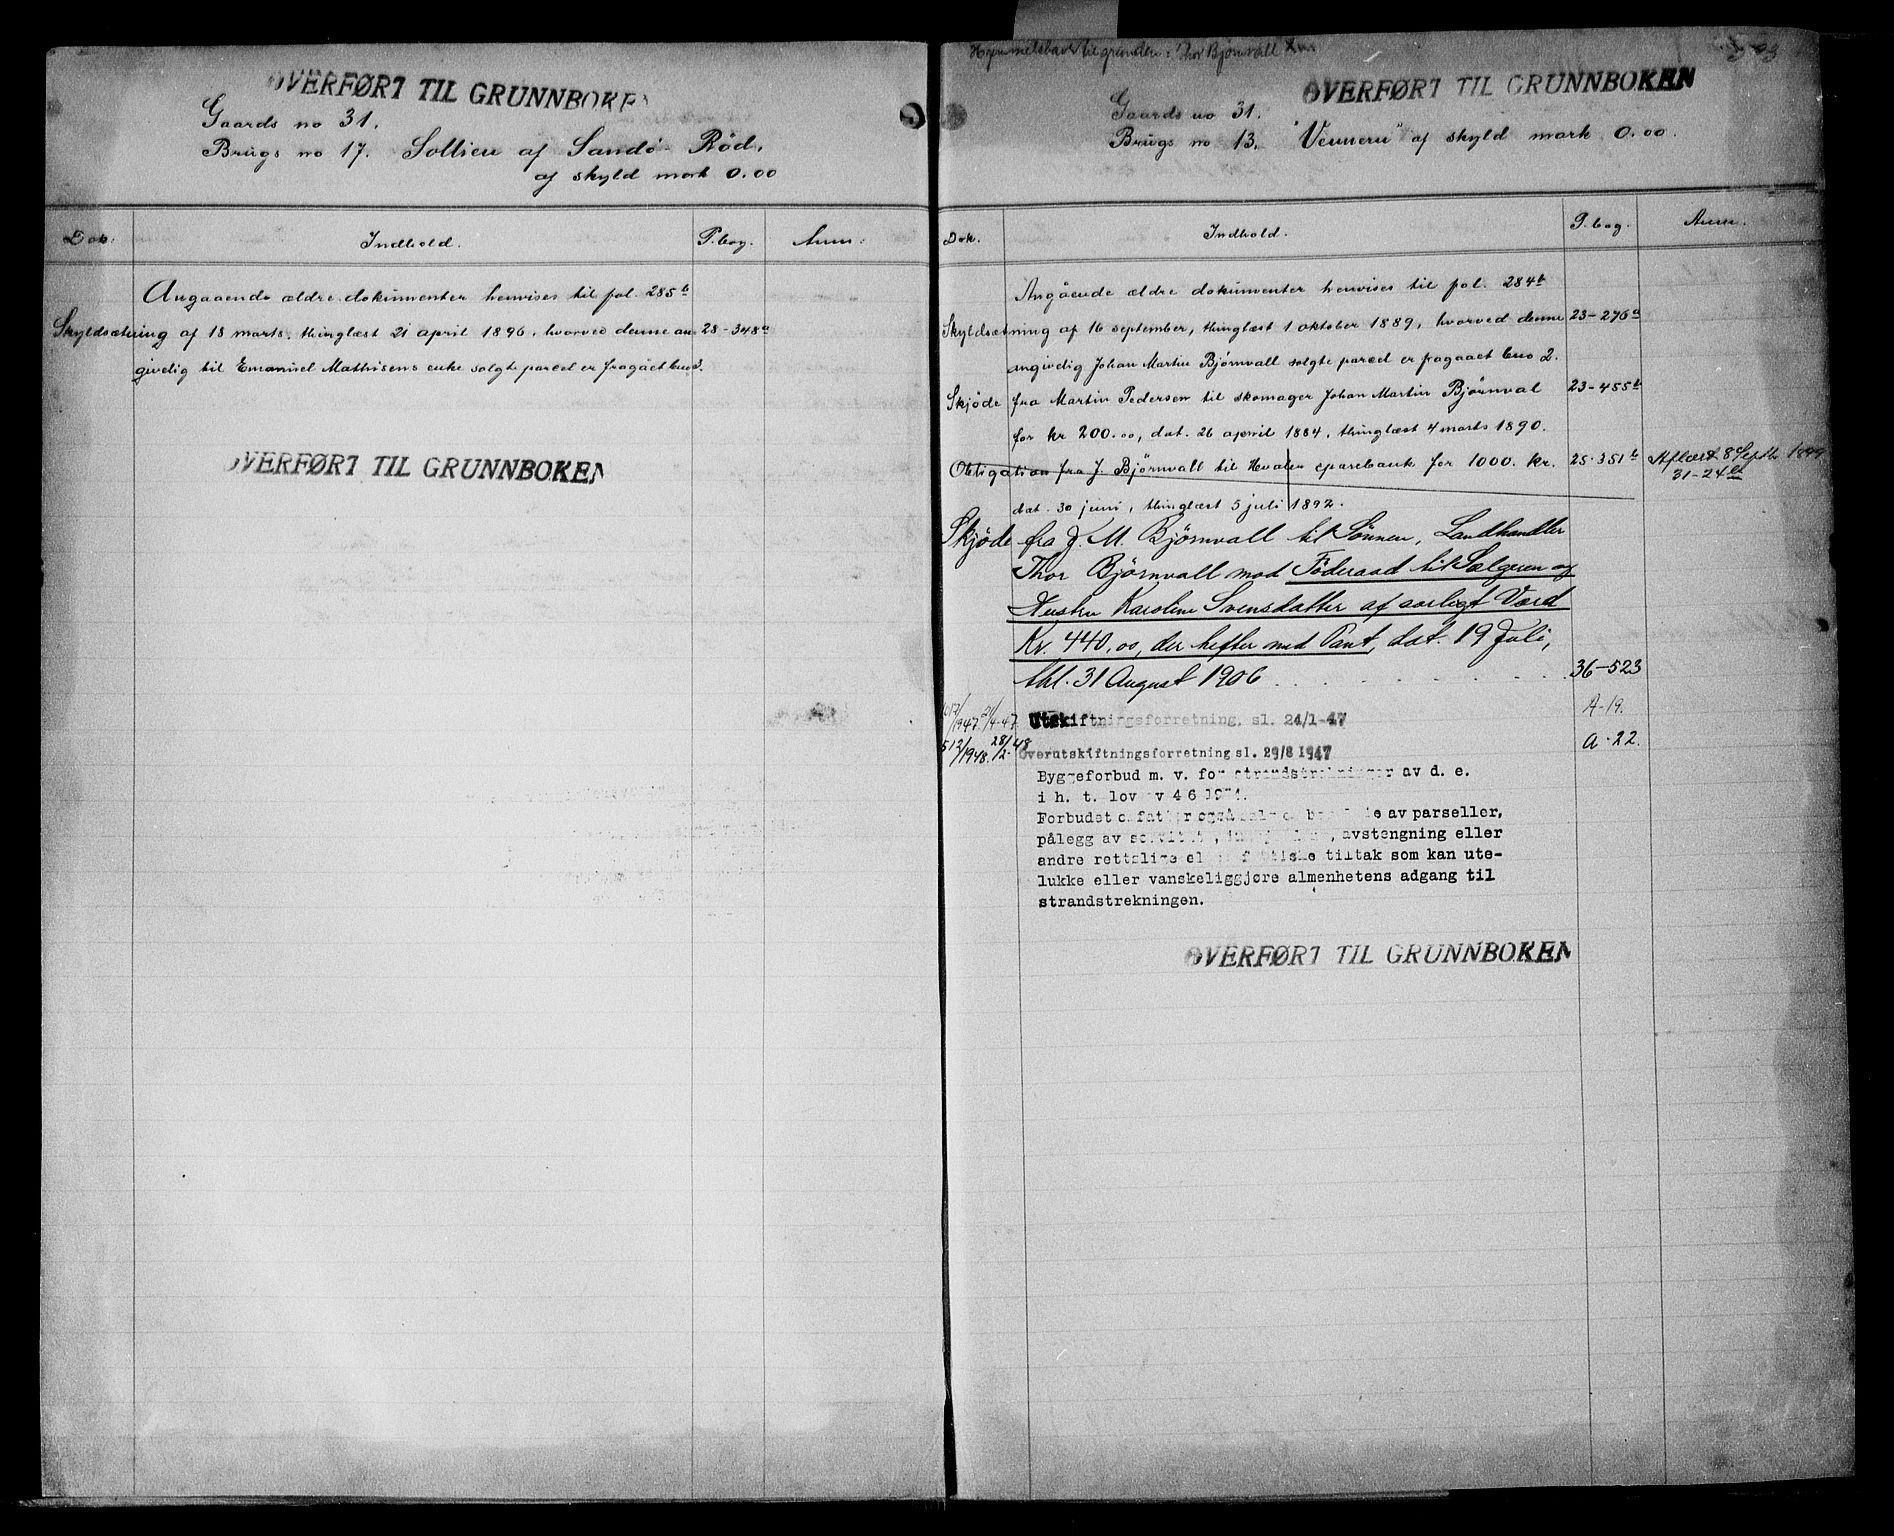 OVERFØRT TIL GRUNNBOKEN
Gaards no 31.
Brugs no 17. Sollien af Sandö Röd,
af skyld mark 0.00
Dok: Indhold. P.bog. Anm:
Angaaende ældre dokumenter henvises til fol. 285b
Skyldsætning af 18 marts, thinglæst 21 april 1896, hvorved denne an 28-348a
givelig til Emanuel Mathisens enke solgte parcel er fragået bno 3.
OVERFØRT TIL GRUNNBOKEN
Hjemmelshaver til grunden: Thor Bjørnvall
OVERFØRT TIL GRUNNBOKEN
Gaards no 31.
Brugs no 13. "Vennern" af skyld mark 0.00.
Dok. Indhold. P.bog. Anm.
Angående ældre dokumenter henvises til fol. 284b
Skyldsætning af 16 september, thinglæst 1 oktober 1889, hvorved denne 23-276a
angivelig Johan Martin Bjørnvall solgte parcel er fragaaet bno 2.
Skjöde fra Martin Pedersen til skomager Johan Martin Bjørnval 23-455b
for kr 200.00, dat. 26 april 1884, thinglæst 4 marts 1890.
Obligation fra J. Bjørnvall til Hvaler sparebank for 1000. kr. 25-351b Aflæst 8 Septb. 1899
31-24
dat. 30 juni, thinglæst 5 juli 1892.
Skjöde fra J. M. Björnvall til Sönnen, Landhandler
Thor Björnvall mod Föderaad til Sælgeren og
Hustru Karoline Svensdatter af aarligt Værd
Kr. 440.00, der hefter med Pant, dat. 19 Juli,
thl. 31 August 1906 36-523
/1947 21/4-47 Utskiftningsforretning, sl. 24/1-47 A-19.
512/1948. 28/2-48 Overutskiftningsforretning sl. 29/8 1947 A-22.
Byggeforbud m. v. for strandstrekninger av d. e.
i h. t. lov av 4 6
Forbudet omfatter også salg av parseller,
pålegg av , avstengning eller
andre rettslige eller faktiske tiltak som kan ute-
lukke eller vanskeliggjøre almenhetens adgang til
strandstrekningen.
OVERFØRT TIL GRUNNBOKEN